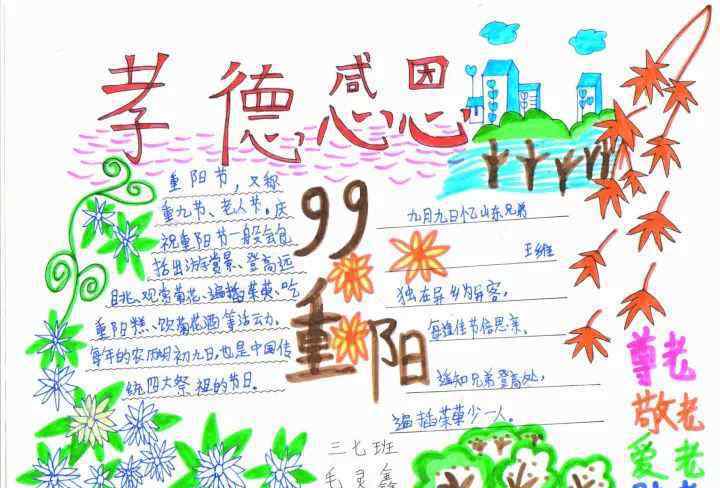 孝德感恩
重阳节，又称
重九节、老人节，庆
祝重阳节一般会包
括出游赏景、登高远
眺、观赏菊花、遍插茱萸、吃
重阳糕、饮菊花酒等活动，
每年的农历九月初九日，也是中国传
统四大祭祖的节日。
99
重阳
九月九日忆山东兄弟
王维
独在异乡为异客，
每逢佳节倍思亲，
遥知兄弟登高处，
遍插茱萸少一人。
三七班
毛灵鑫
尊老
敬老
爱老